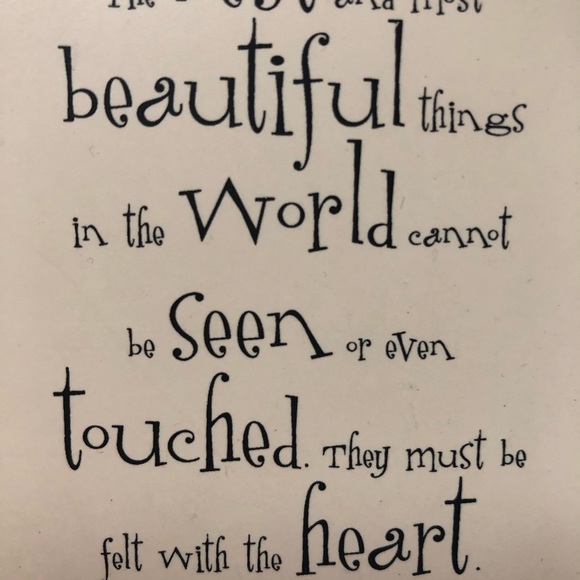 The best and most
beautiful things
in the World cannot
be Seen or even
touched. They must be
felt with the heart.